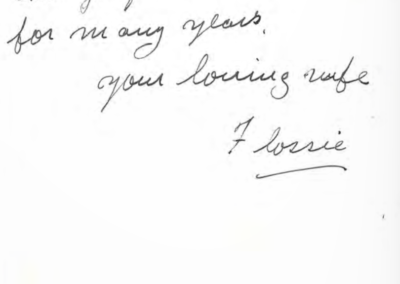 for many years.
your loving wife
Flossie